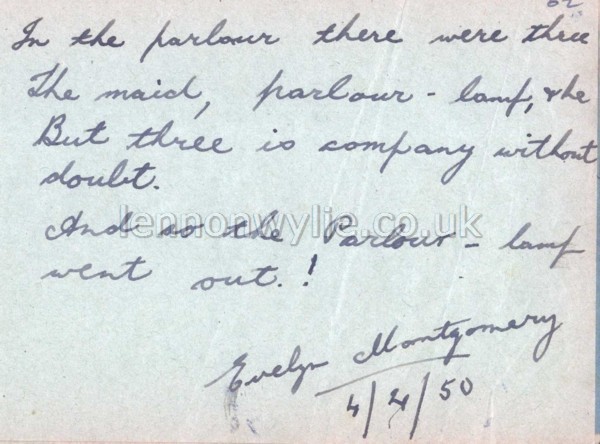 62
In the parlour there were three
The maid, parlour - lamp, & he
But three is company without
doubt.
And so the Parlour - lamp
went out.!
lennonwylie.co.uk
Evelyn Montgomery
4/4/50